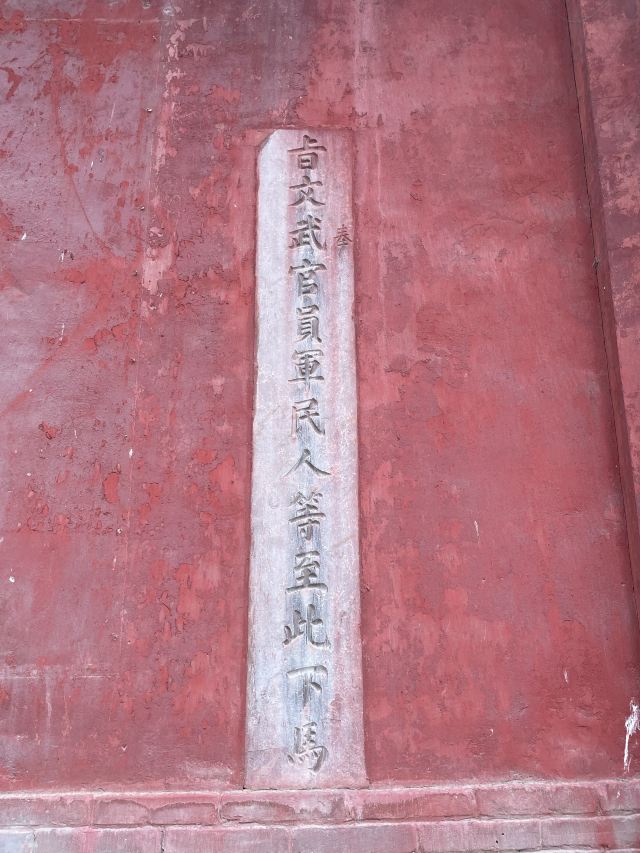 奉
旨文武官員軍民人等至此下馬